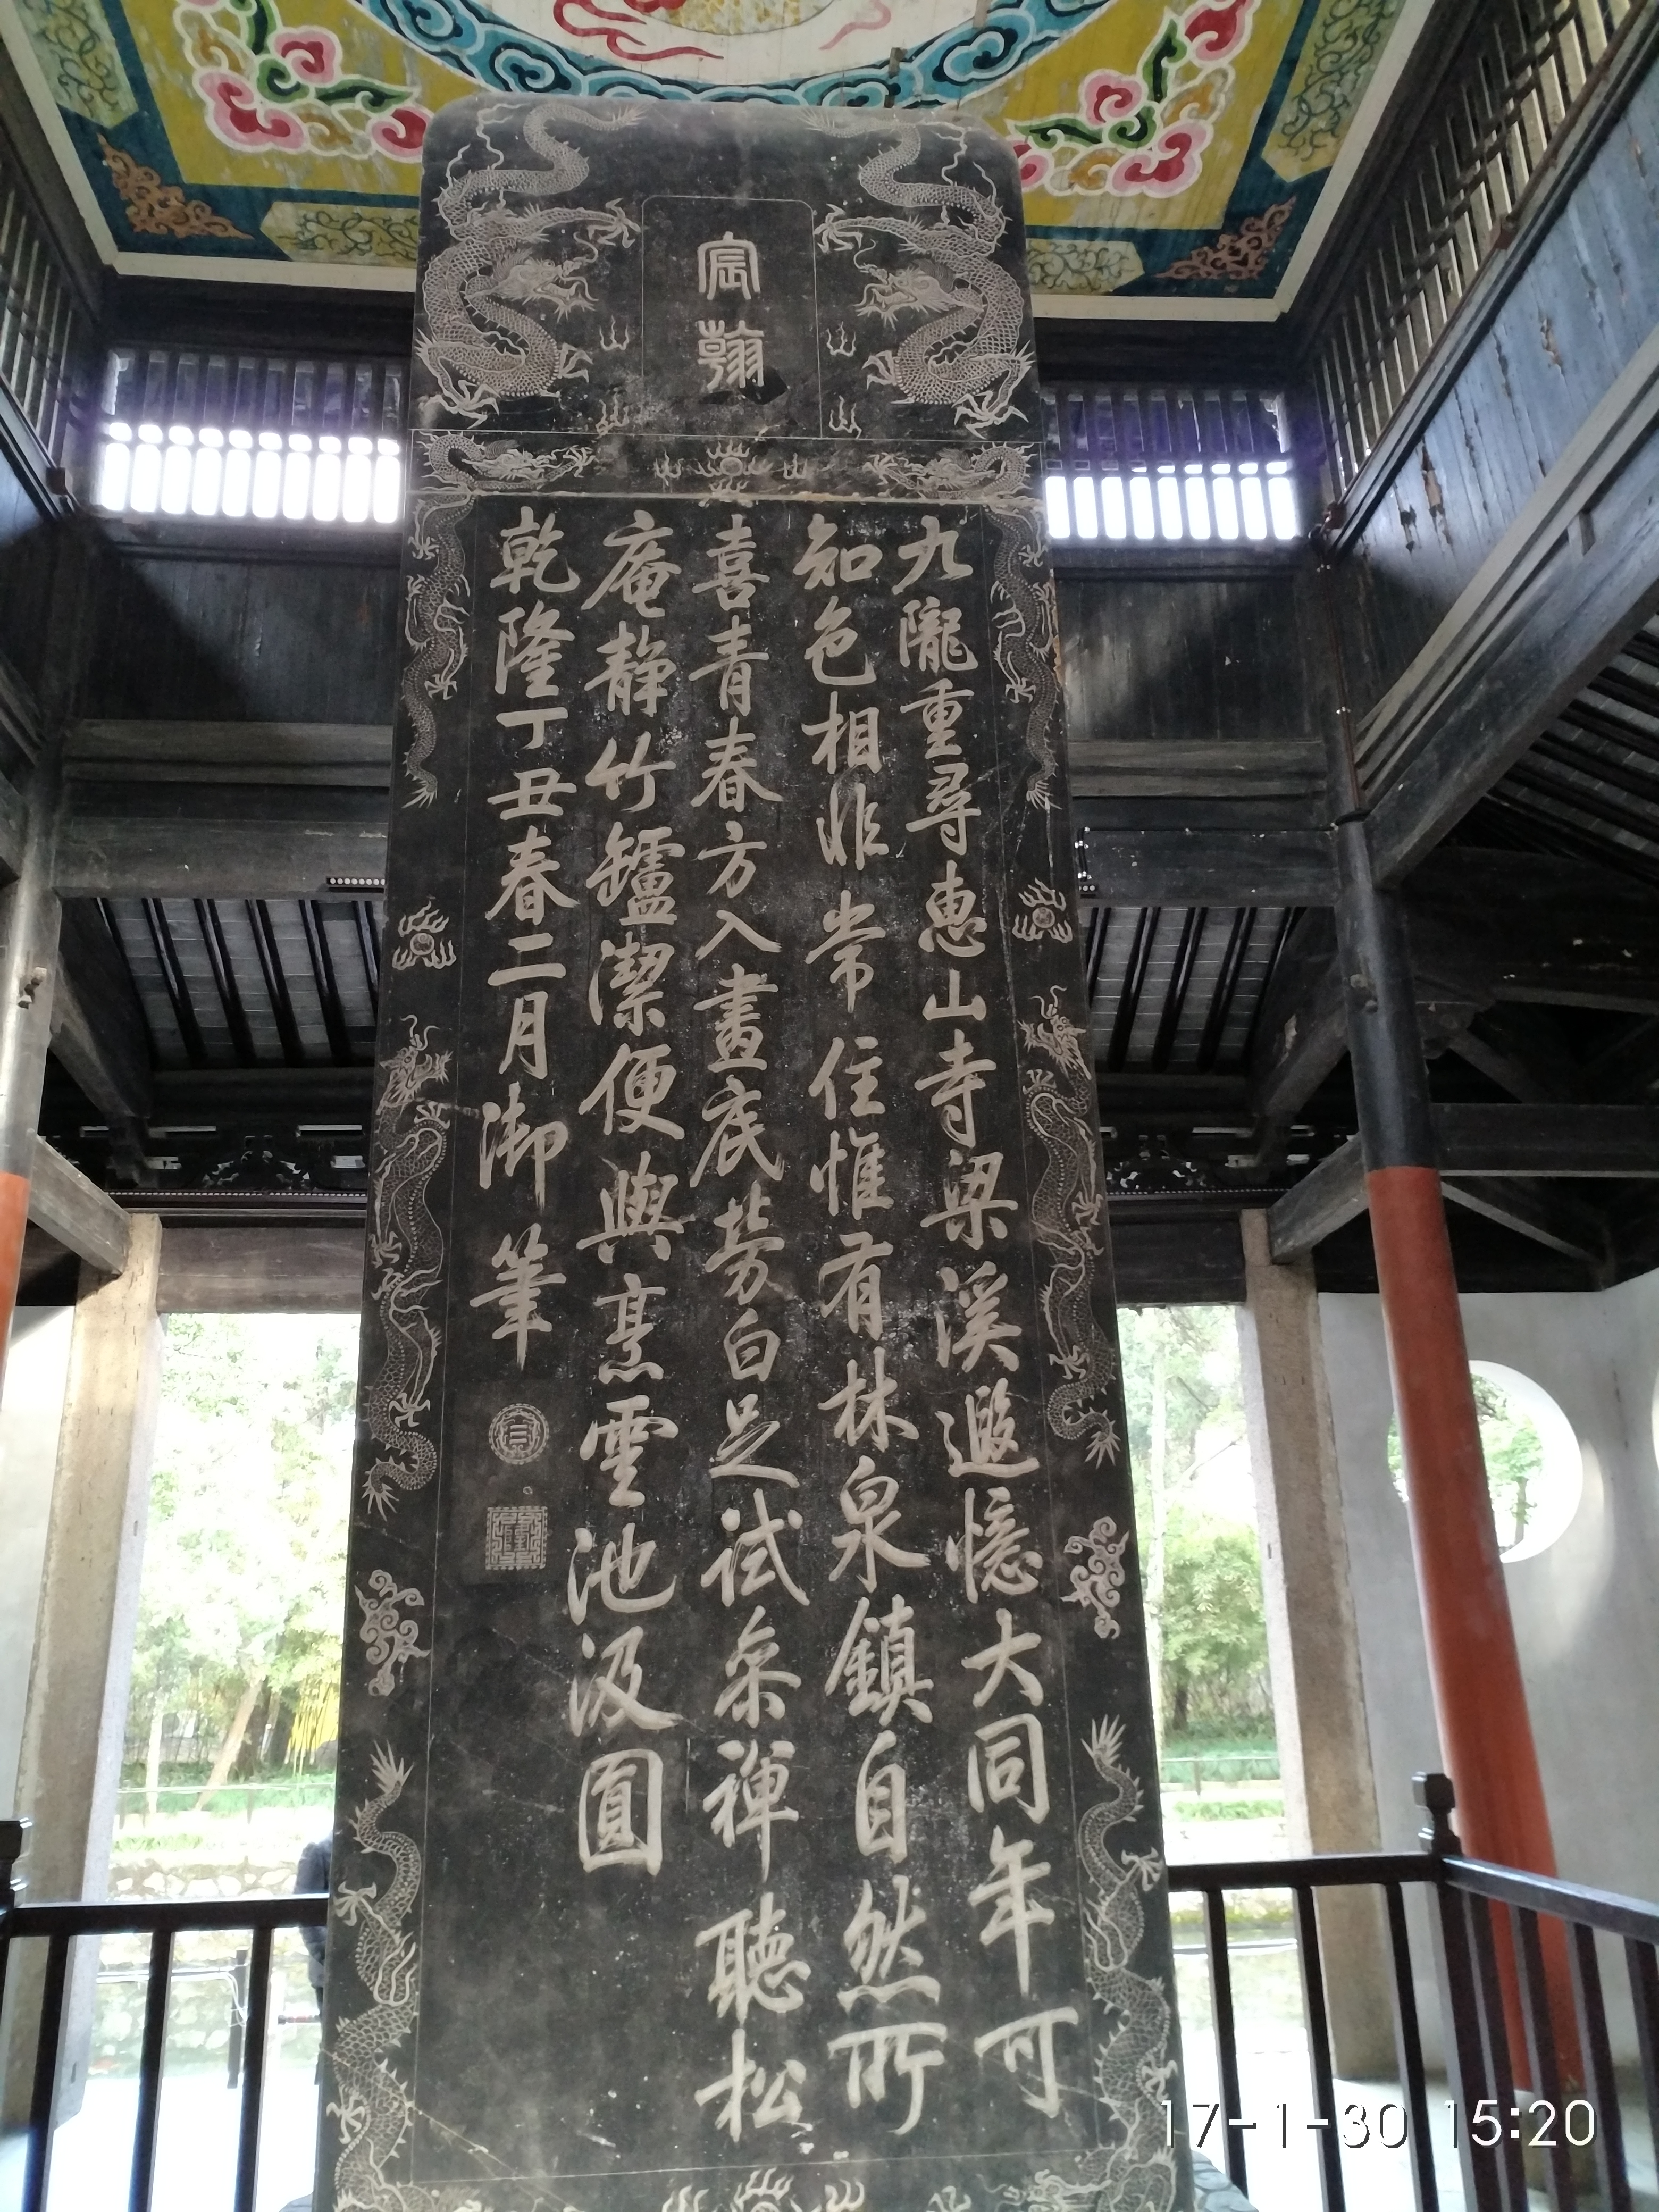 宸翰
九隴重尋惠山寺梁溪遐憶大同年可
知色相非常住惟有林泉鎮自然所
喜青春方入畫底勞白足試參禪聽松
庵静竹罏潔便與烹雲池汲圓
乾隆丁丑春二月御筆
17-1-30 15:20